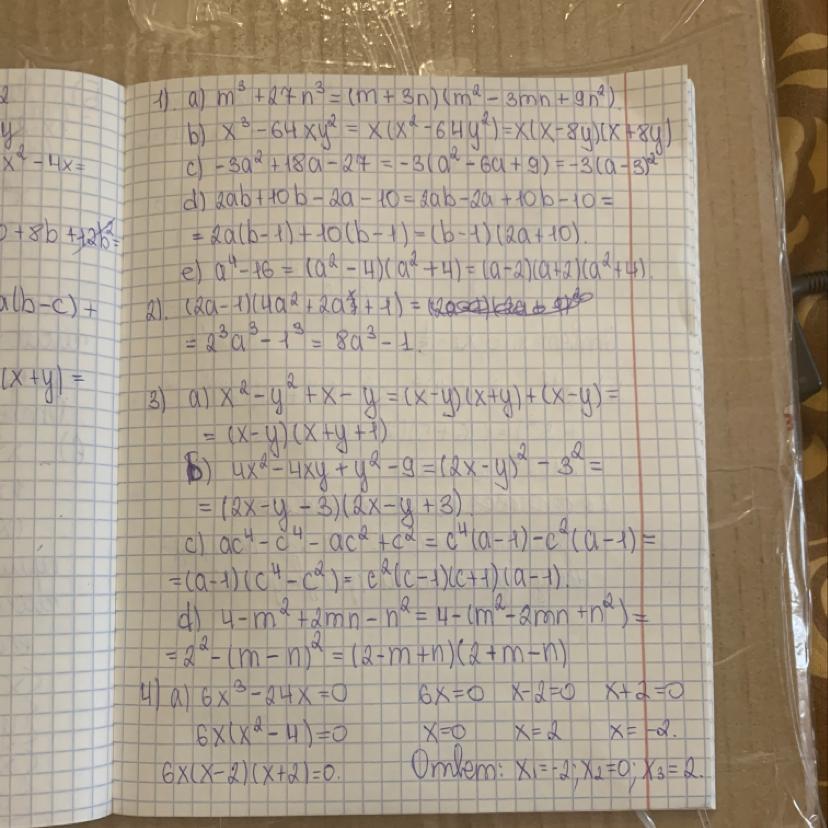 2
y
x² - 4x =
+8b + 12b² =
a(b-c) +
(x+y) =
1) a) m³ + 27n³ = (m + 3n)(m² - 3mn + 9n²)
b) x³ - 64xy² = x(x² - 64y²) = x(x - 8y)(x + 8y)
c) -3a² + 18a - 27 = -3(a² - 6a + 9) = -3(a - 3)²
d) 2ab + 10b - 2a - 10 = 2ab - 2a + 10b - 10 =
= 2a(b-1) + 10(b-1) = (b-1)(2a+10).
e) a⁴ - 16 = (a² - 4)(a² + 4) = (a-2)(a+2)(a²+4).
2). (2a-1)(4a² + 2a + 1) =
= 2³a³ - 1³ = 8a³ - 1.
3) a) x² - y² + x - y = (x-y)(x+y) + (x-y) =
= (x-y)(x+y+1)
б) 4x² - 4xy + y² - 9 = (2x-y)² - 3² =
= (2x-y-3)(2x-y+3).
c) ac⁴ - c⁴ - ac² + c² = c⁴(a-1) - c²(a-1) =
= (a-1)(c⁴-c²) = c²(c-1)(c+1)(a-1).
d) 4 - m² + 2mn - n² = 4 - (m² - 2mn + n²) =
= 2² - (m-n)² = (2-m+n)(2+m-n)
4) a) 6x³ - 24x = 0 6x=0 x-2=0 x+2=0
6x(x² - 4) = 0 x=0 x=2 x=-2.
6x(x-2)(x+2)=0. Ответ: x₁=-2; x₂=0; x₃=2.